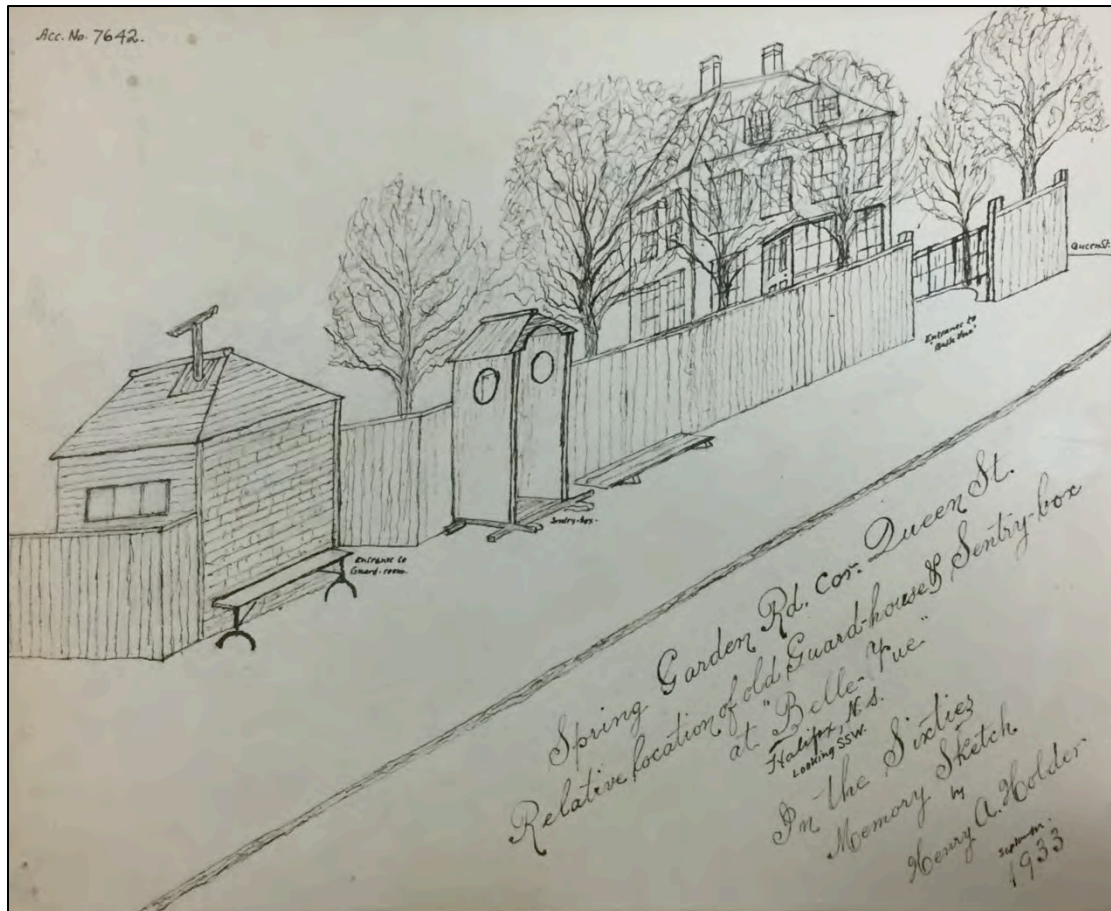 Acc. No. 7642.
Queen St.
Entrance to
"Belle Vue"
Sentry-box-
Entrance to
Guard-room
Spring Garden Rd. cor. Queen St.
Relative location of old Guard-house & Sentry-box
at "Belle-Vue"
Halifax, N.S.
Looking SSW.
In the Sixties
Memory Sketch
by
Henry A. Holder
September.
1933